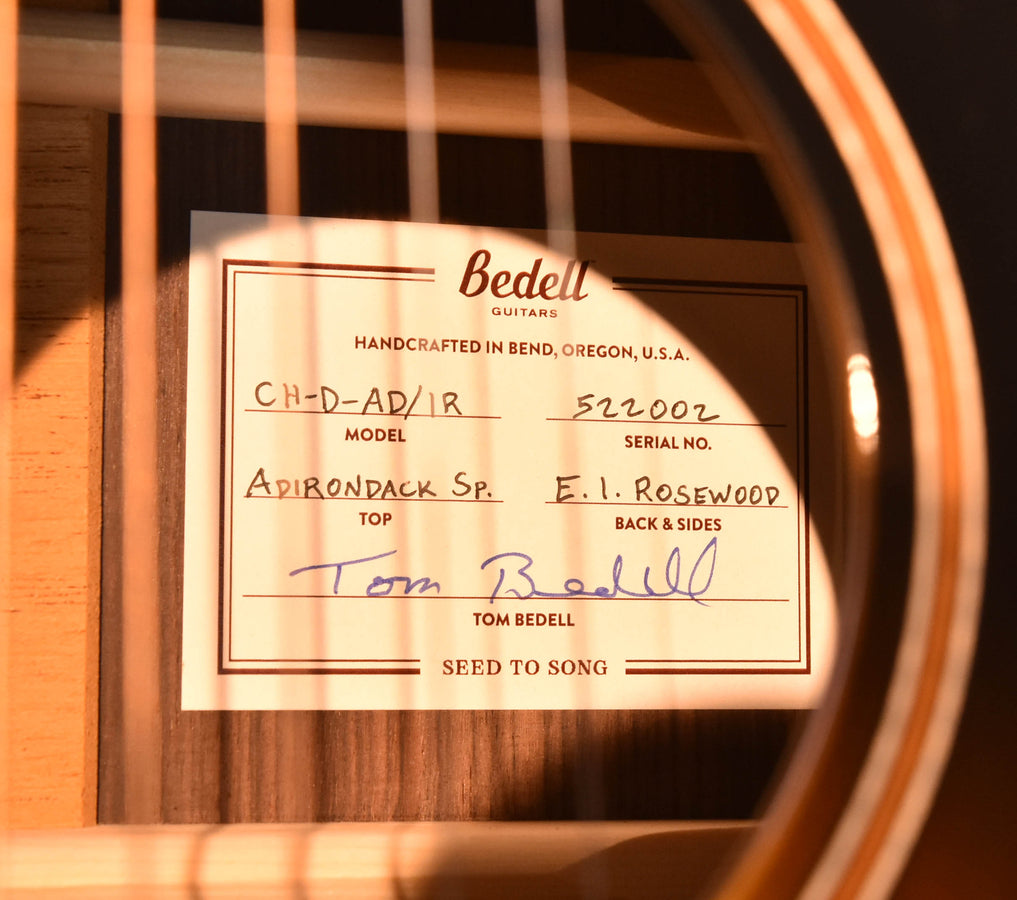 Bedell
GUITARS
HANDCRAFTED IN BEND, OREGON, U.S.A.
CH-D-AD/IR 522002
MODEL SERIAL NO.
ADIRONDACK SP. E. I. ROSEWOOD
TOP BACK & SIDES
Tom Bedell
TOM BEDELL
SEED TO SONG